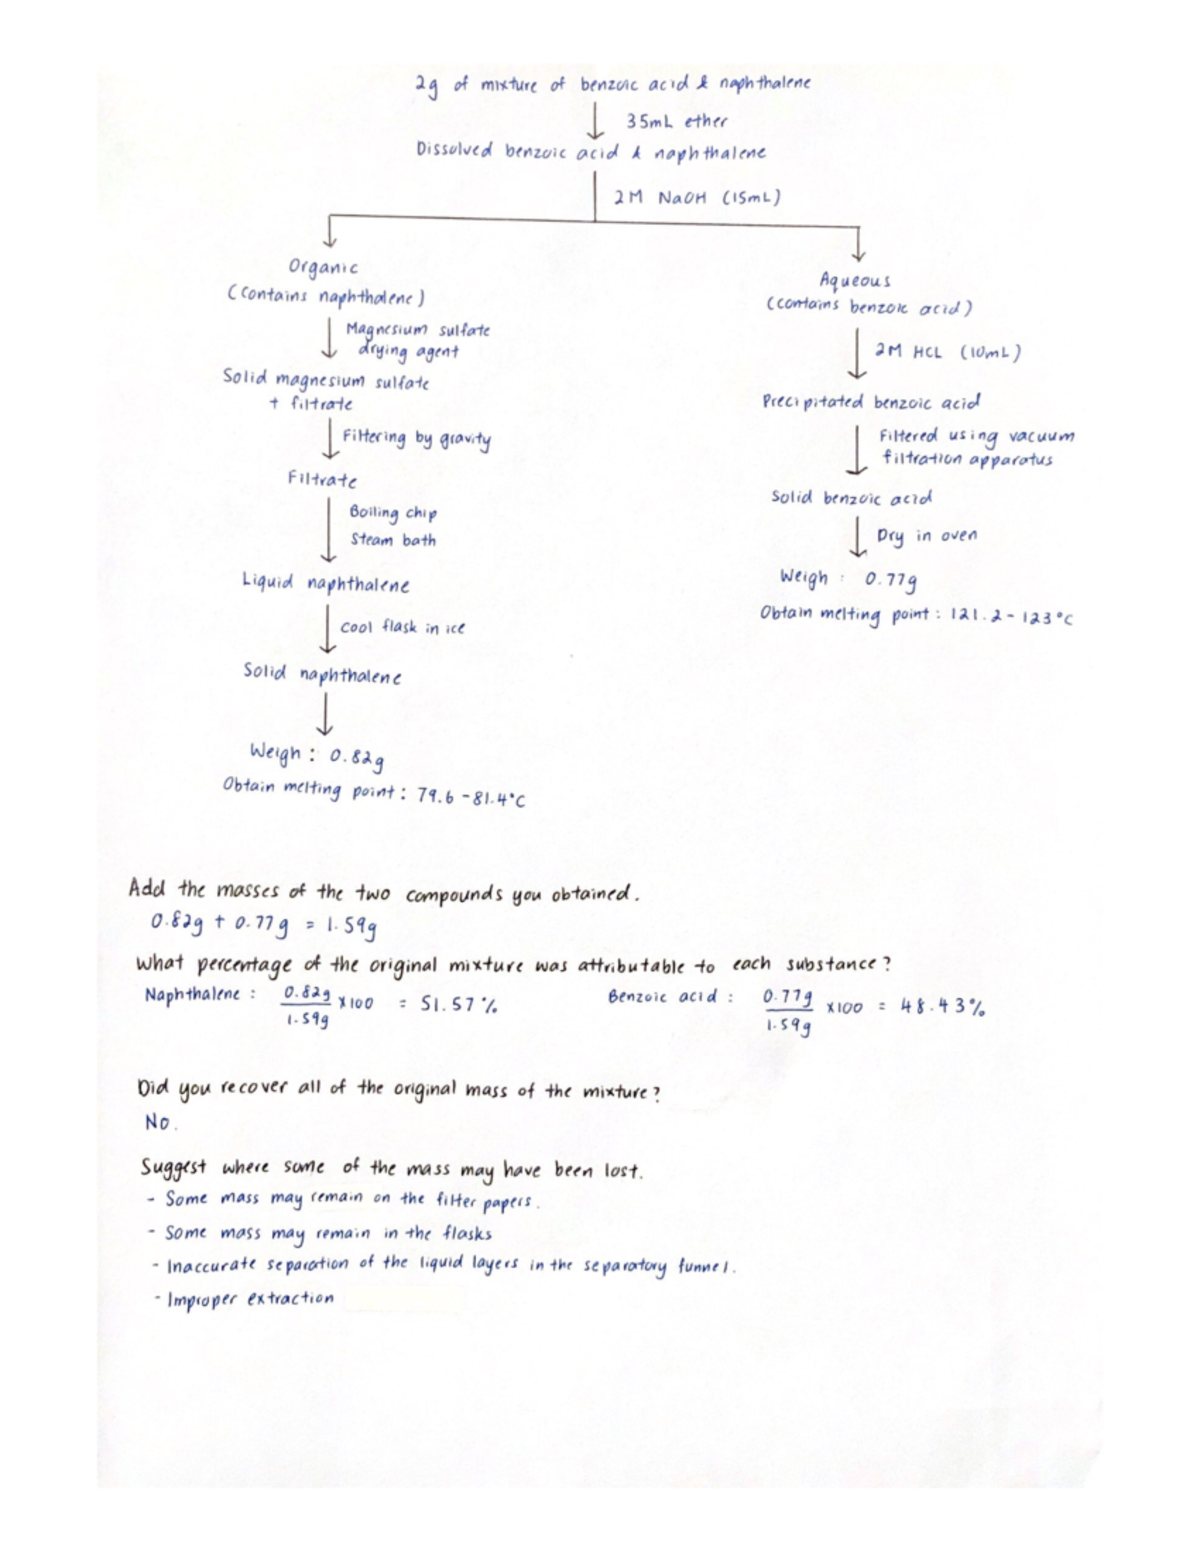 2g of mixture of benzoic acid & naphthalene
35mL ether
Dissolved benzoic acid & naphthalene
2M NaOH (15mL)
Organic
(contains naphthalene)
Magnesium sulfate
drying agent
Solid magnesium sulfate
+ filtrate
Filtering by gravity
Filtrate
Boiling chip
Steam bath
Liquid naphthalene
Cool flask in ice
Solid naphthalene
Weigh : 0.82g
Obtain melting point : 79.6 - 81.4°C
Aqueous
(contains benzoic acid)
2M HCL (10mL)
Precipitated benzoic acid
Filtered using vacuum
filtration apparatus
Solid benzoic acid
Dry in oven
Weigh : 0.77g
Obtain melting point : 121.2 - 123°C
Add the masses of the two compounds you obtained.
0.82g + 0.77g = 1.59g
What percentage of the original mixture was attributable to each substance?
Naphthalene : 0.82g / 1.59g x100 = 51.57%
Benzoic acid : 0.77g / 1.59g x100 = 48.43%
Did you recover all of the original mass of the mixture?
No.
Suggest where some of the mass may have been lost.
- Some mass may remain on the filter papers.
- Some mass may remain in the flasks
- Inaccurate separation of the liquid layers in the separatory funnel.
- Improper extraction